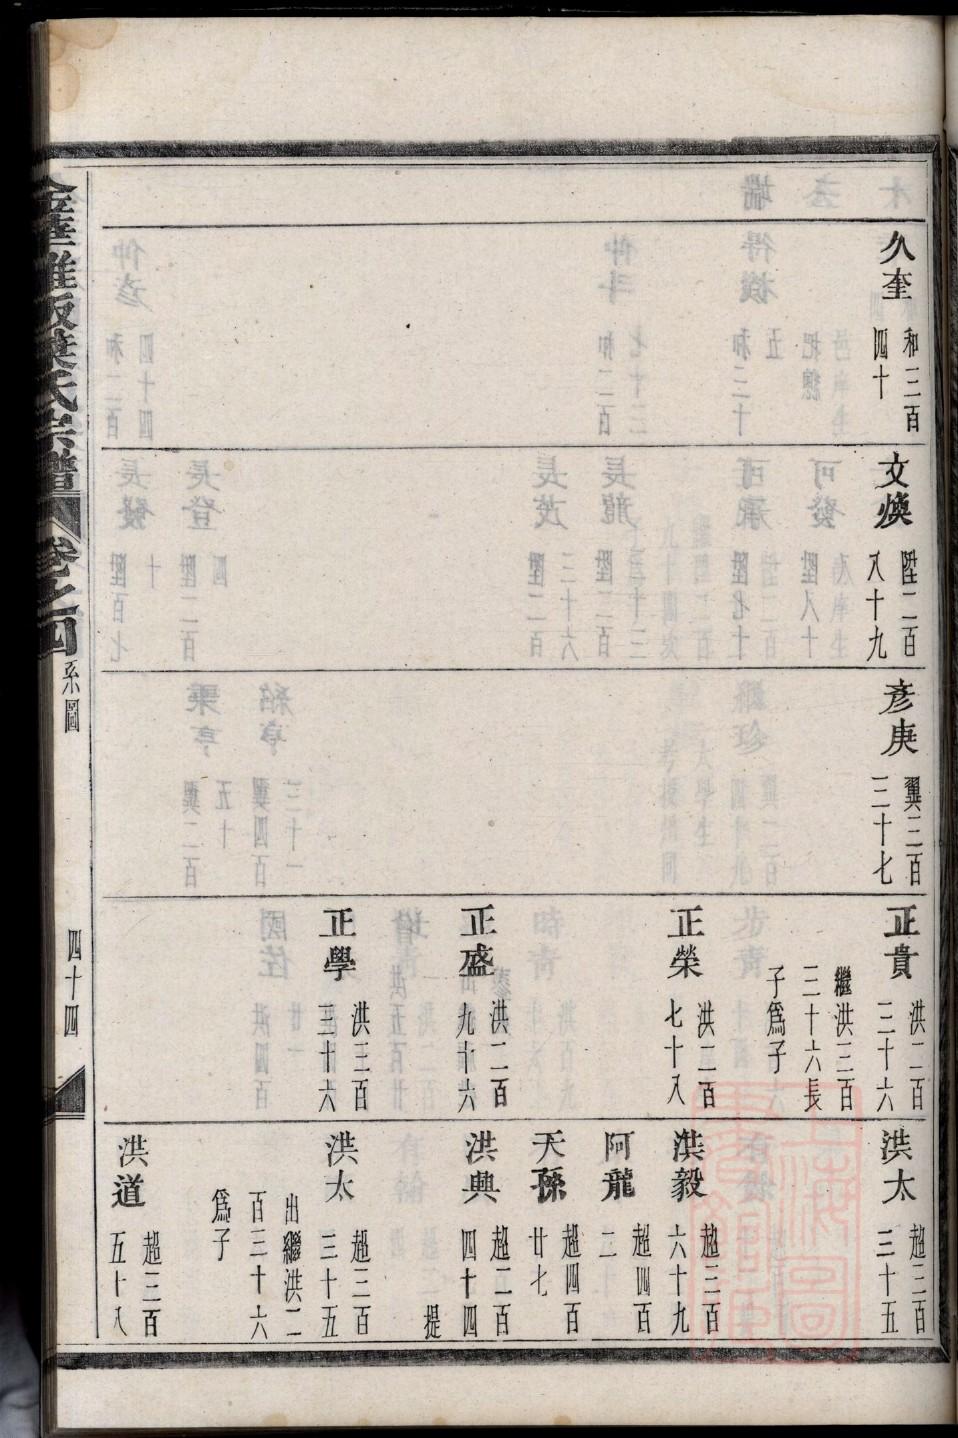 久奎
和三百
四十
文煥
陞二百
八十九
彥庚
翼三百
三十七
正貴
洪二百
三十六
繼洪三百
三十六長
子爲子
正榮
洪二百
七十八
正盛
洪二百
九十六
正學
洪三百
三十六
洪太
超三百
三十五
洪毅
超三百
六十九
阿龍
超四百
二
天孫
超四百
廿七
洪興
超二百
四十四
提
洪太
超三百
三十五
出繼洪二
百三十六
爲子
洪道
超三百
五十八
葉氏宗譜
卷之四
系圖
四十四